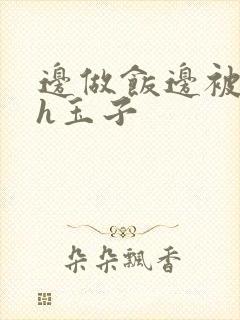 邊做飯邊被
h玉子
朵朵飄香